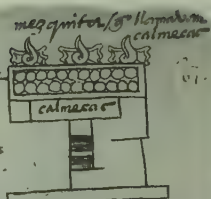 mezquitas / q̃ llamavan
calmecac
calmecac